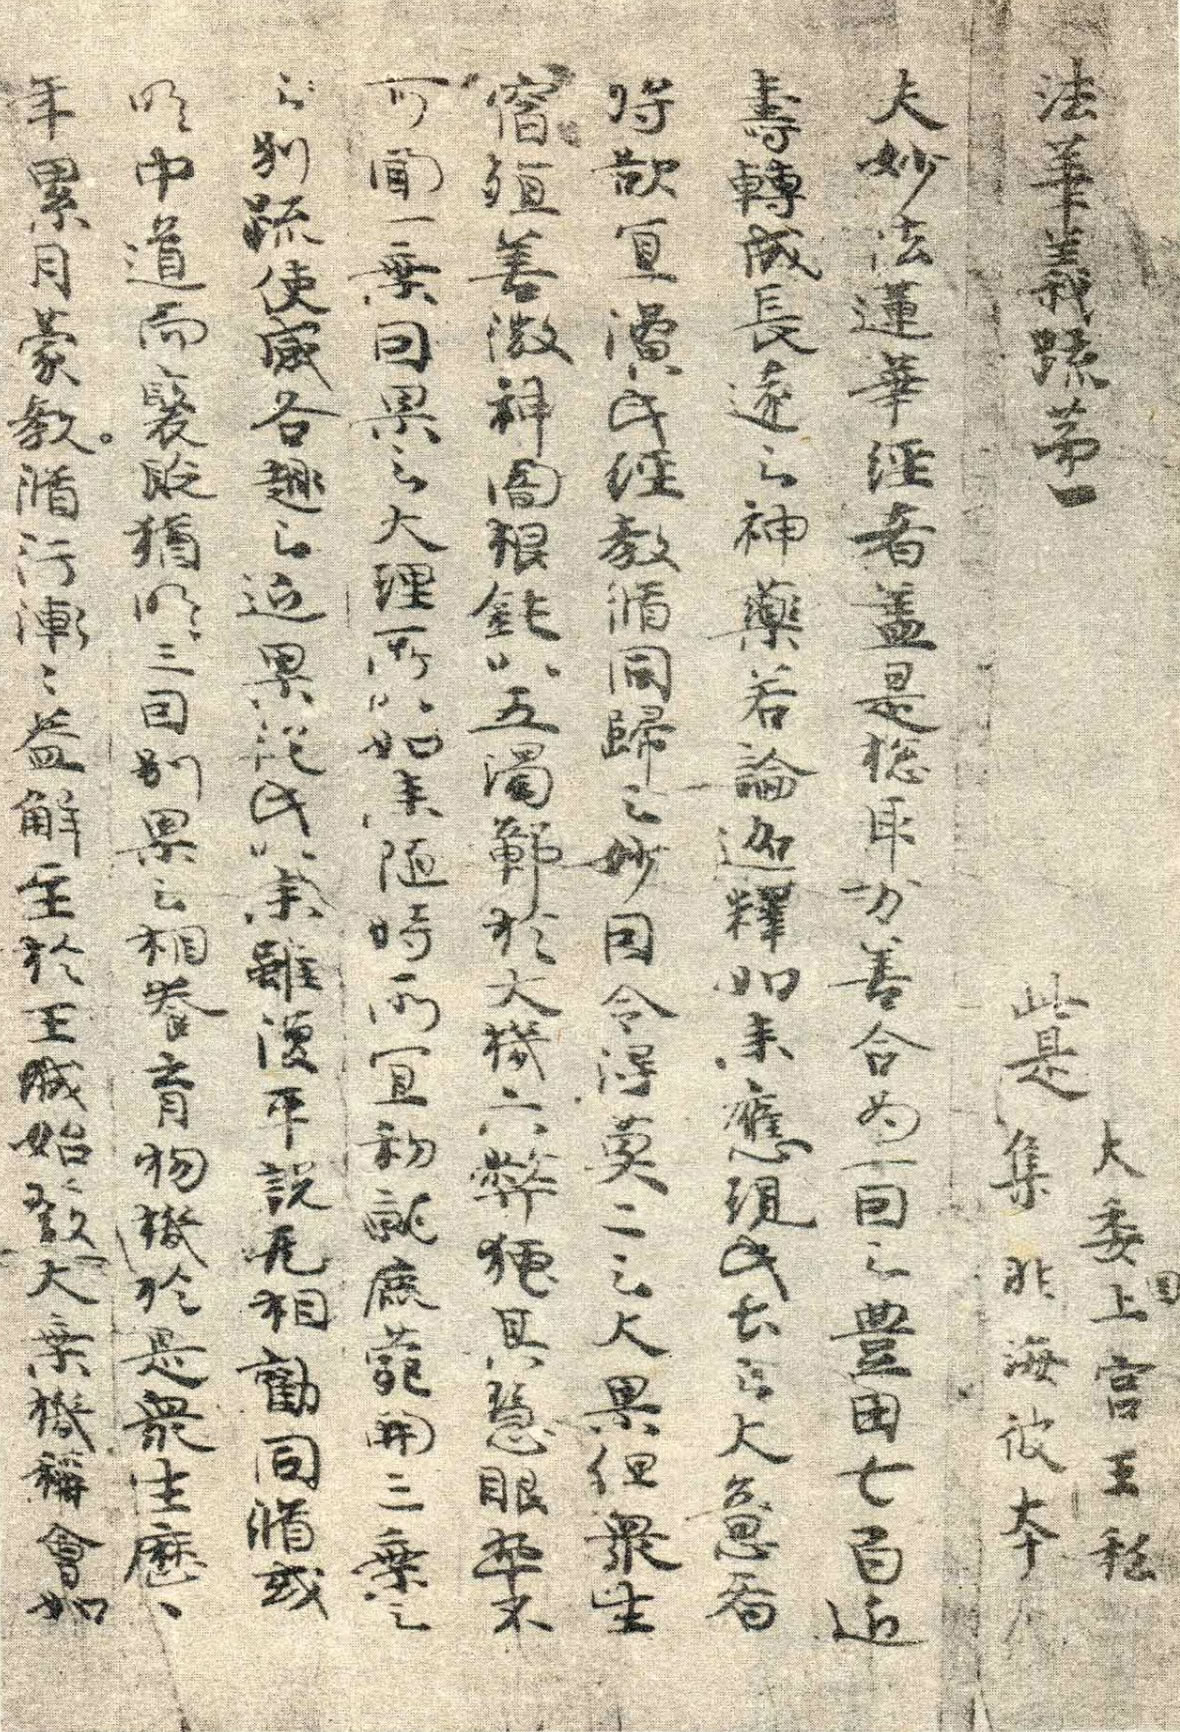 法華義疏第一
此是
大委国上宮王私
集非海彼本
夫妙法蓮華経者盖是惣取万善合為一因之豊田七百近
壽轉成長遠之神藥若論迦釋如来應現此土之大意者
将欲宜演此経教脩同歸之妙因令得莫二之大果但衆生
宿殖善微神闇根鈍以五濁鄣於大機六弊掩其慧眼卒不
可聞一乗因果之大理所以如来随時所宜初就鹿菀開三乗之
之別疏使感各趣之近果従此以来雖復平説无相勸同脩或
明中道而褒貶猶明三因別果之相養育物機於是衆生歴〻
年累月蒙教脩行漸〻益解至於王城始發大乗機稱會如